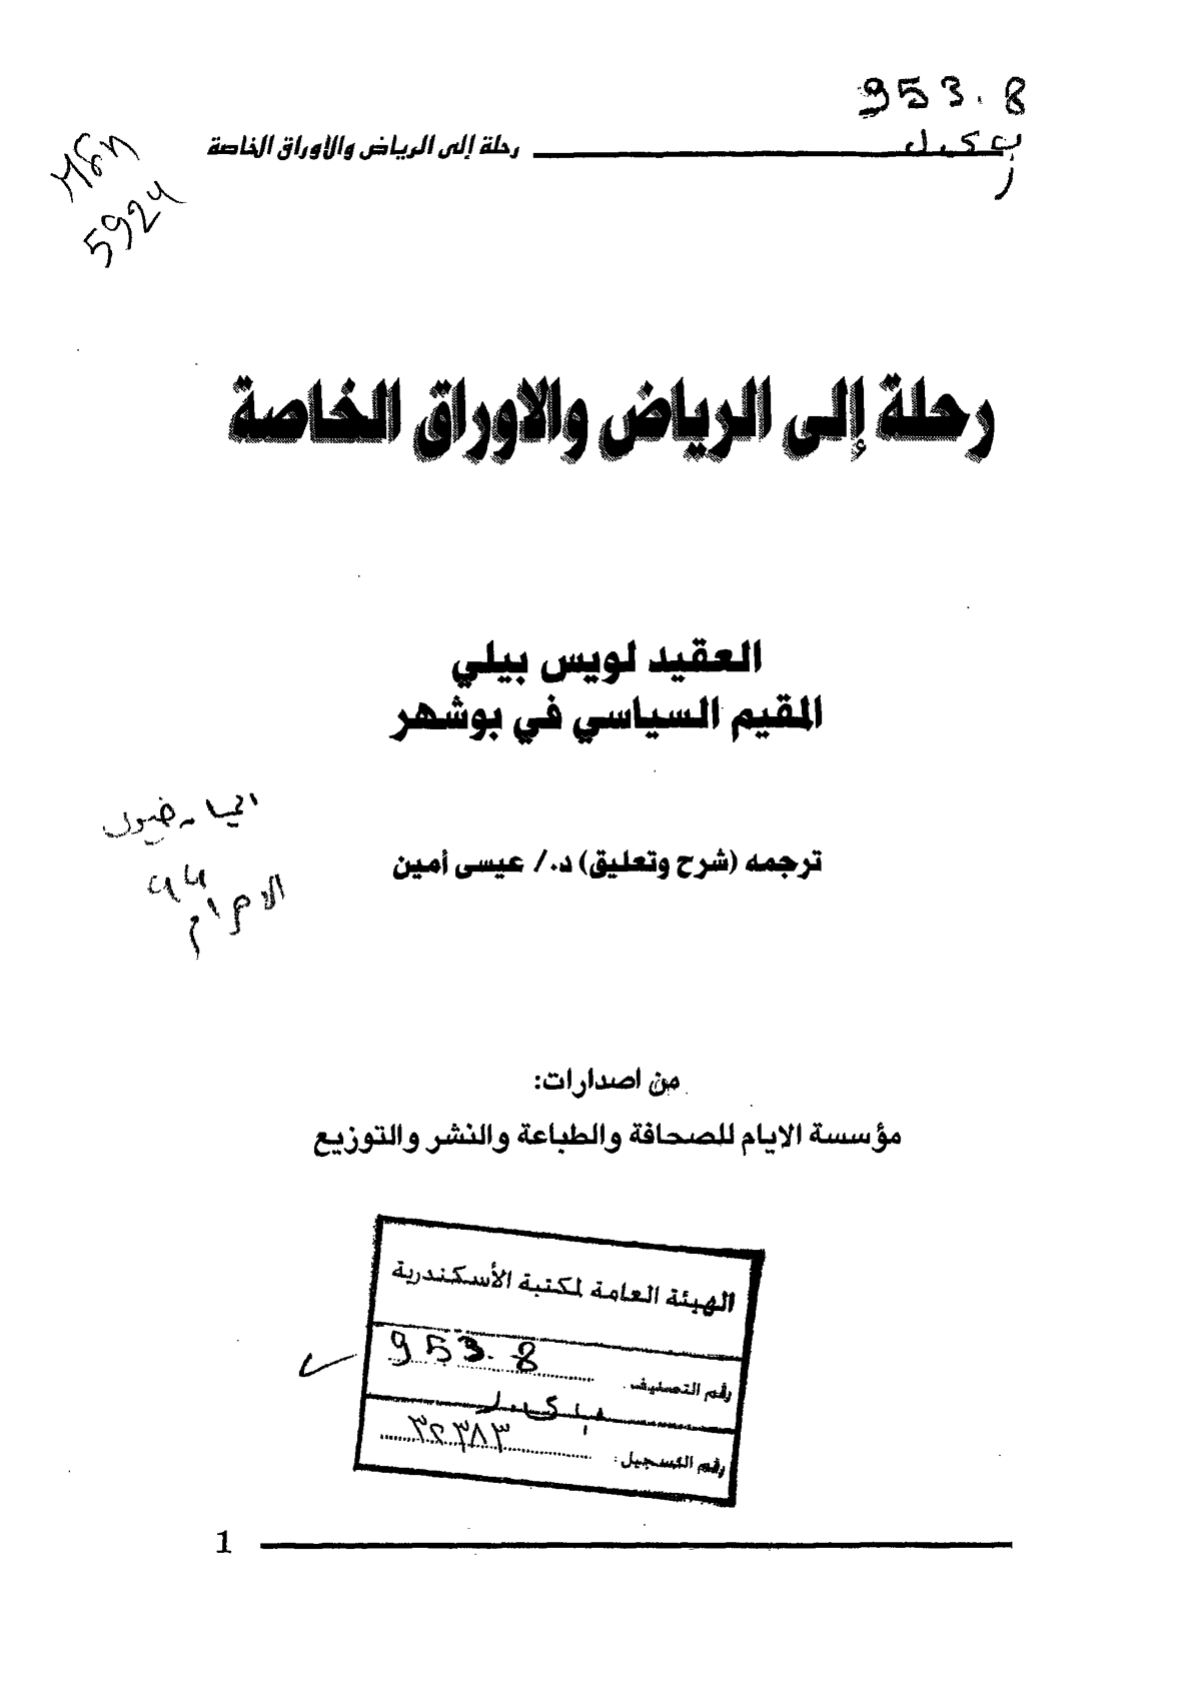 953.8
ب ي. ل
ر
رحلة إلى الرياض والاوراق الخاصة
5924
رحلة إلى الرياض والاوراق الخاصة
العقيد لويس بيلي
المقيم السياسي في بوشهر
ترجمه (شرح وتعليق) د./ عيسى أمين
الاهرام
من اصدارات:
مؤسسة الايام للصحافة والطباعة والنشر والتوزيع
الهيئة العامة لمكتبة الأسكندرية
رقم التصنيف: 953.8
ب ي. ل
رقم التسجيل: ٣٢٣٨٣
1